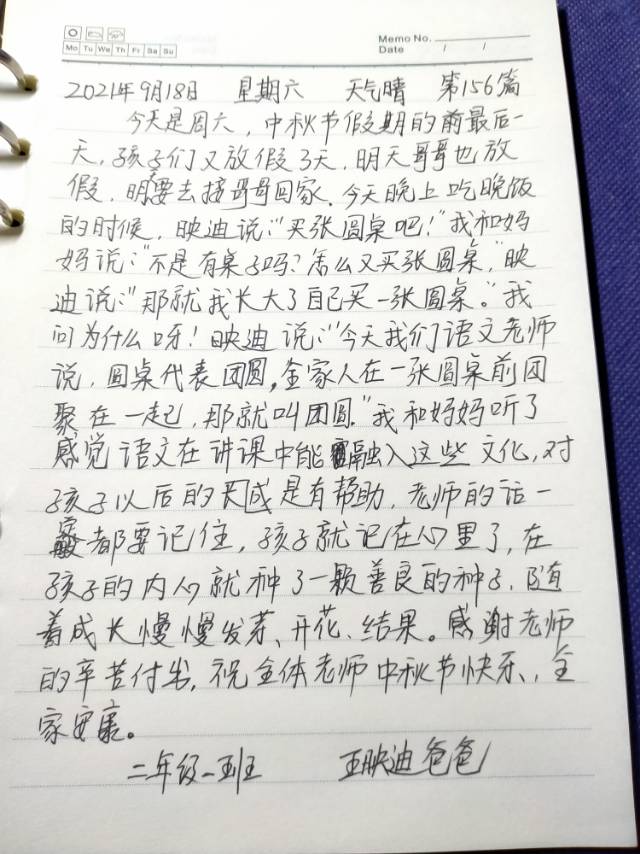 Memo No.
Mo Tu We Th Fr Sa Su
Date / /
2021年9月18日 星期六 天气晴 第156篇
今天是周六，中秋节假期的前最后一
天，孩子们又放假了天，明天哥哥也放
假，明要去接哥哥回家。今天晚上吃晚饭
的时候，映迪说："买张圆桌吧！"我和妈
妈说："不是有桌子吗？怎么又买张圆桌，"映
迪说："那就我长大了自己买一张圆桌。"我
问为什么呀！映迪说："今天我们语文老师
说，圆桌代表团圆，全家人在一张圆桌前团
聚在一起，那就叫团圆。"我和妈妈听了
感觉语文在讲课中能融入这些文化，对
孩子以后的成是有帮助，老师的话一
都要记住，孩子就记在心里了，在
孩子的内心就种了一颗善良的种子，随
着成长慢慢发芽、开花、结果。感谢老师
的辛苦付出，祝全体老师中秋节快乐，全
家安康。
二年级一班 王映迪爸爸